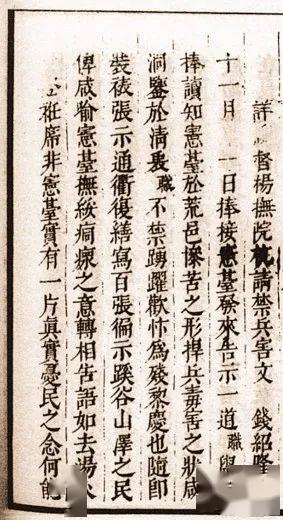 詳 督楊撫院 請禁兵害文 錢紹隆
十一月 一日捧接憲臺發來告示一道職
捧讀知憲臺於荒邑慘苦之形捍兵毒害之狀咸
洞鑒於清衷職不禁踴躍歡忭為殘黎慶也隨即
裝裱張示通衢復繕寫百張徧示蹊谷山澤之民
俾咸喻憲臺撫綏痌瘝之意轉相告語如去湯火
袵席非憲臺實有一片真實憂民之念何能